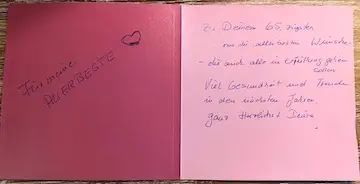 Für meine
ALLERBESTE
Zu Deinem 65. zigsten
nur die allerbesten Wünsche
- die auch alle in Erfüllung gehen
sollen
Viel Gesundheit und Freude
in den nächsten Jahren
ganz herzlichst Deine